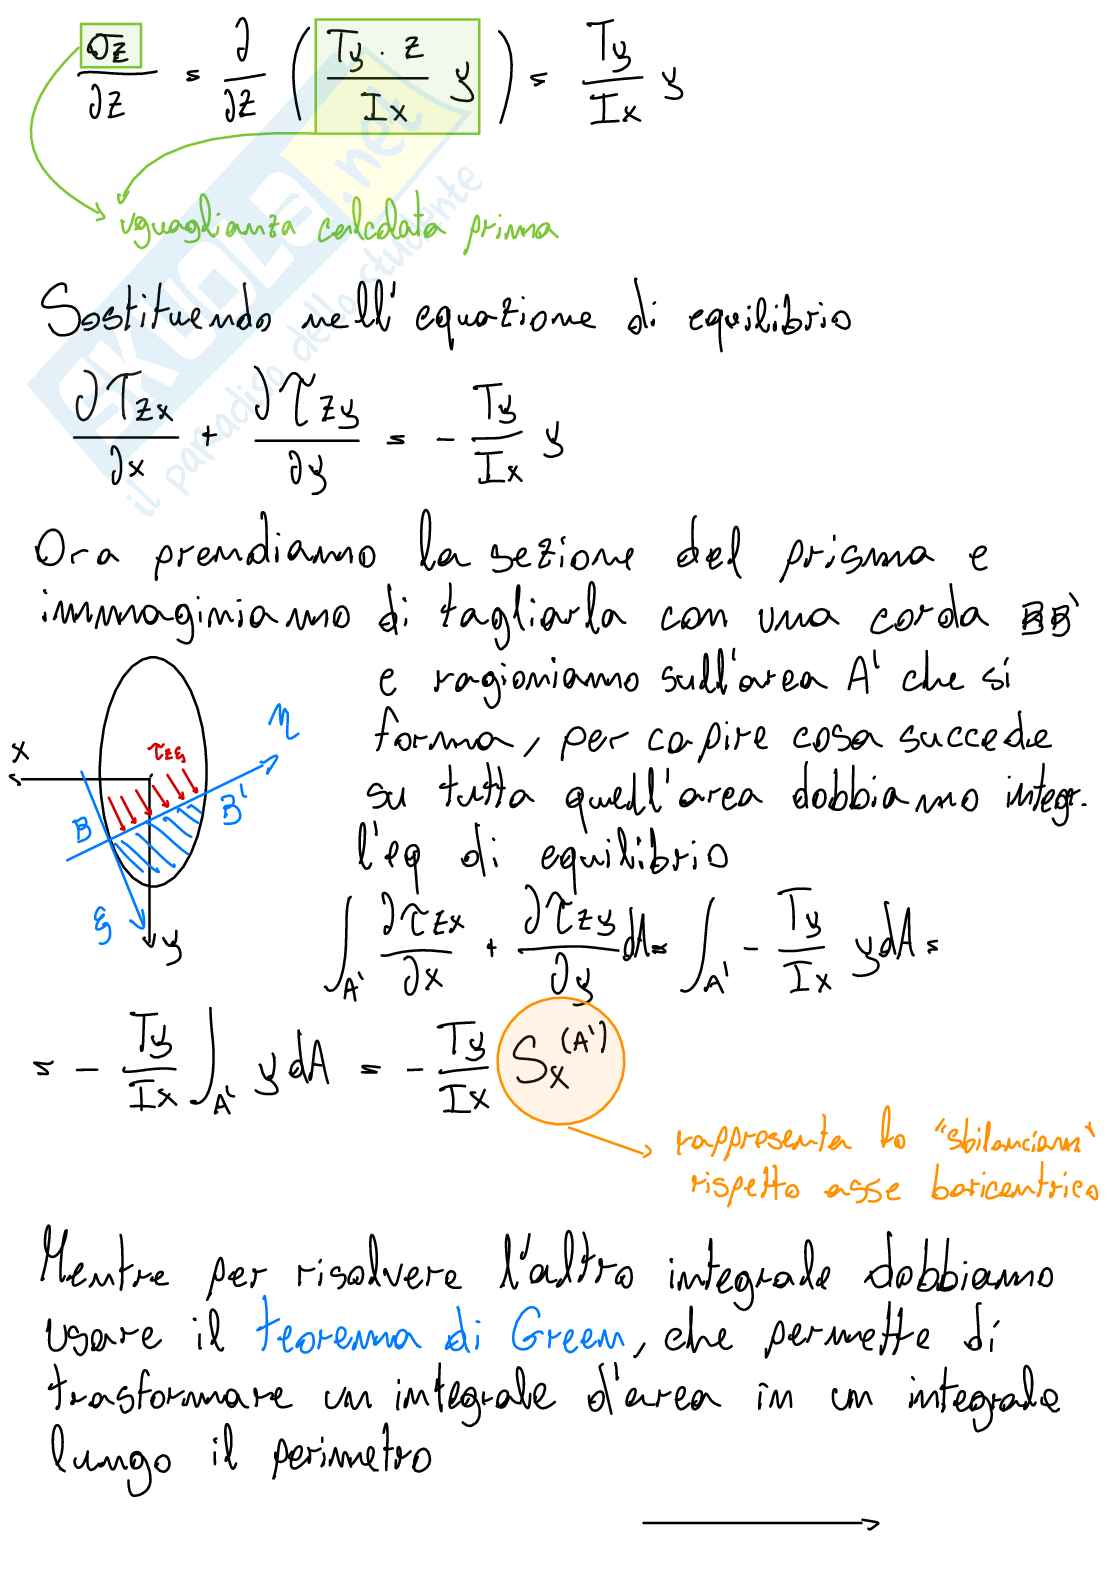 σz/∂z = ∂/∂z (Ty · z/Ix y) = Ty/Ix y
uguaglianza calcolata prima
Sostituendo nell'equazione di equilibrio
∂τzx/∂x + ∂τzy/∂y = - Ty/Ix y
Ora prendiamo la sezione del prisma e
immaginiamo di tagliarla con una corda BB'
e ragioniamo sull'area A' che si
forma, per capire cosa succede
su tutta quell'area dobbiamo integr.
l'eq di equilibrio
x
τzξ
η
B
B'
ξ
y
∫A' ∂τzx/∂x + ∂τzy/∂y dA = ∫A' - Ty/Ix y dA =
= - Ty/Ix ∫A' y dA = - Ty/Ix Sx(A')
rappresenta lo "sbilanciam"
rispetto asse baricentrico
Mentre per risolvere l'altro integrale dobbiamo
usare il teorema di Green, che permette di
trasformare un integrale d'area in un integrale
lungo il perimetro
SKUOLA.net
il paradiso dello studente